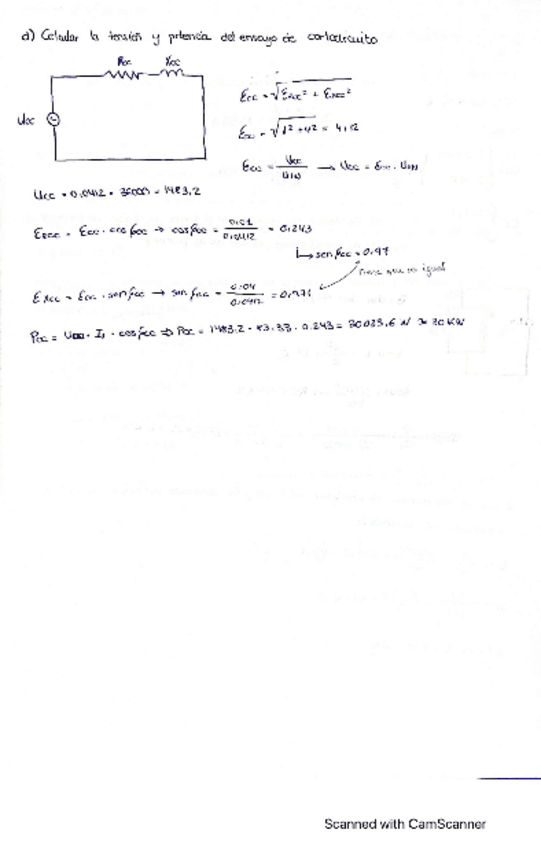 d) Calcular la tensión y potencia del ensayo de cortocircuito
Rcc Xcc
Ucc
Ecc = √(ERcc² + EXcc²)
Ecc = √(1² + 4²) = 4,12
Ecc = Ucc / U1N → Ucc = Ecc · U1N
Ucc = 0,0412 · 36000 = 1483,2
ERcc = Ecc · cosφcc → cosφcc = 0,01 / 0,0412 = 0,243
↳ senφcc = 0,97
Tiene que ser igual
EXcc = Ecc · senφcc → senφcc = 0,04 / 0,0412 = 0,971
Pcc = Ucc · I1 · cosφcc ⇒ Pcc = 1483,2 · 83,33 · 0,243 = 30025,6 W ≈ 30 KW
Scanned with CamScanner